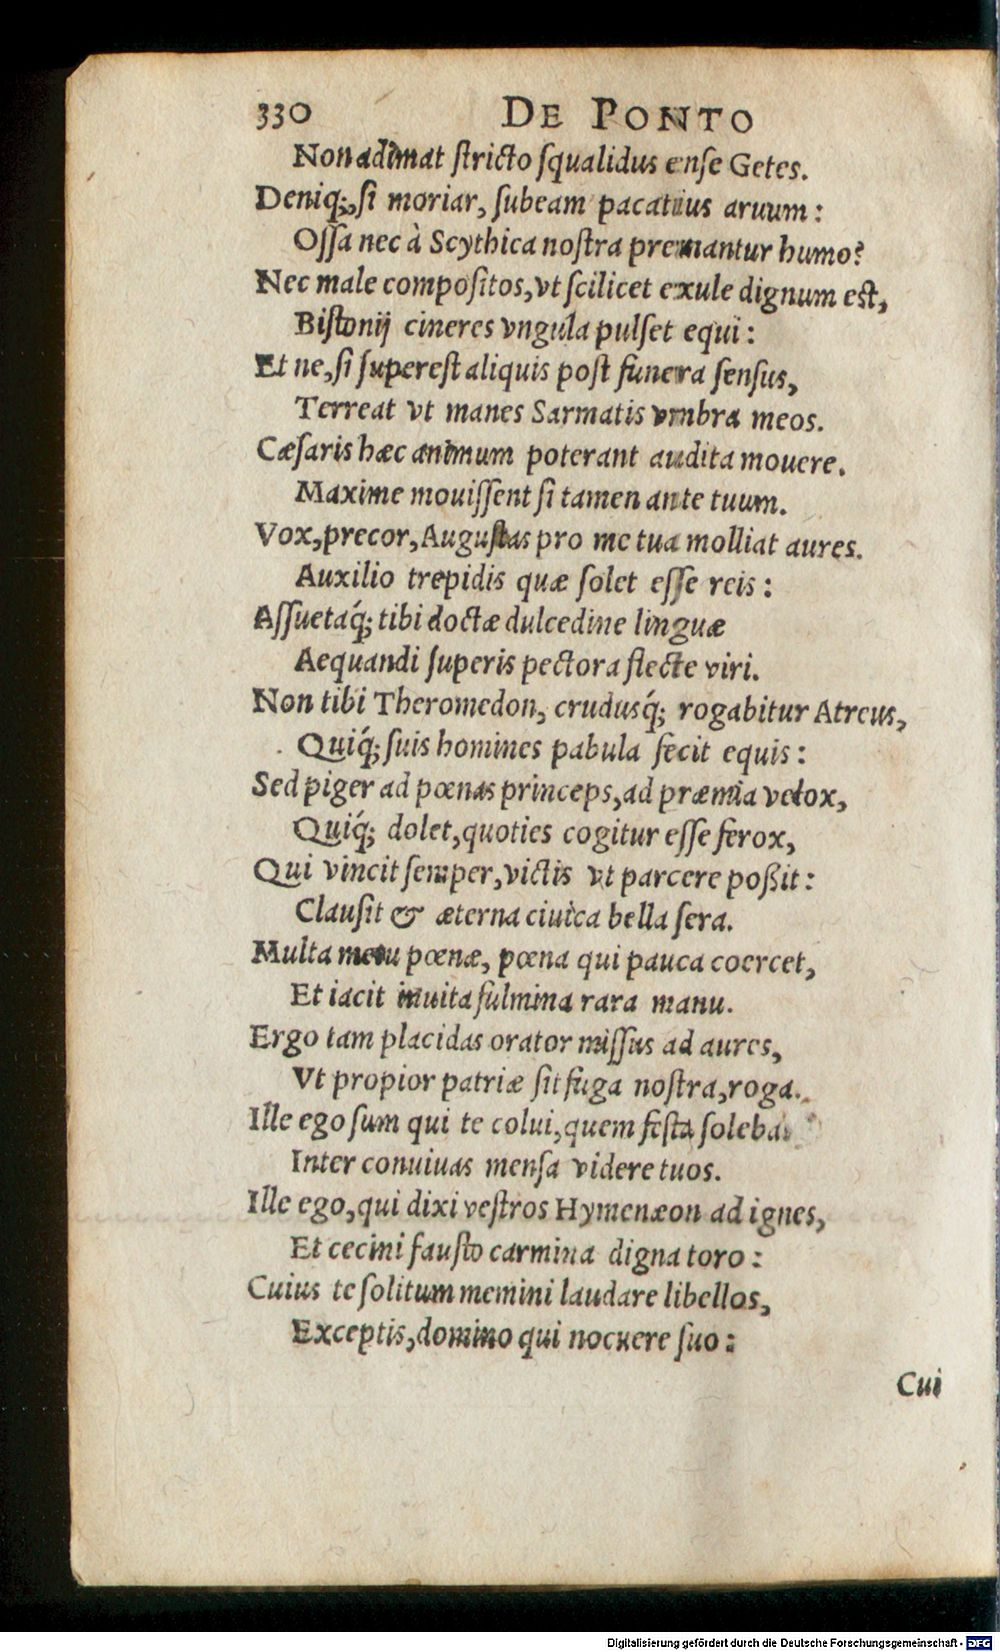 330 DE PONTO
Non adimat ſtricto ſqualidus enſe Getes.
Deniq;, ſi moriar, ſubeam pacatius aruum:
Oſſa nec à Scythica noſtra premantur humo?
Nec male compoſitos, vt ſcilicet exule dignum eſt,
Biſtonij cineres vngula pulſet equi:
Et ne, ſi ſupereſt aliquis poſt funera ſenſus,
Terreat vt manes Sarmatis vmbra meos.
Cæſaris hæc animum poterant audita mouere.
Maxime mouiſſent ſi tamen ante tuum.
Vox, precor, Auguſtas pro me tua molliat aures.
Auxilio trepidis quæ ſolet eſſe reis:
Aſſuetaq́; tibi doctæ dulcedine linguæ
Aequandi ſuperis pectora flecte viri.
Non tibi Theromedon, crudusq́; rogabitur Atreus,
Quiq́; ſuis homines pabula fecit equis:
Sed piger ad pœnas princeps, ad præmia velox,
Quiq́; dolet, quoties cogitur eſſe ferox,
Qui vincit ſemper, victis vt parcere poßit:
Clauſit & æterna ciuica bella ſera.
Multa metu pœnæ, pœna qui pauca coercet,
Et iacit inuita fulmina rara manu.
Ergo tam placidas orator miſſus ad aures,
Vt propior patriæ ſit fuga noſtra, roga.
Ille ego ſum qui te colui, quem feſta ſoleba
Inter conuiuas menſa videre tuos.
Ille ego, qui dixi veſtros Hymenæon ad ignes,
Et cecini fauſto carmina digna toro:
Cuius te ſolitum memini laudare libellos,
Exceptis, domino qui nocuere ſuo:
Cui
Digitalisierung gefördert durch die Deutsche Forschungsgemeinschaft - DFG